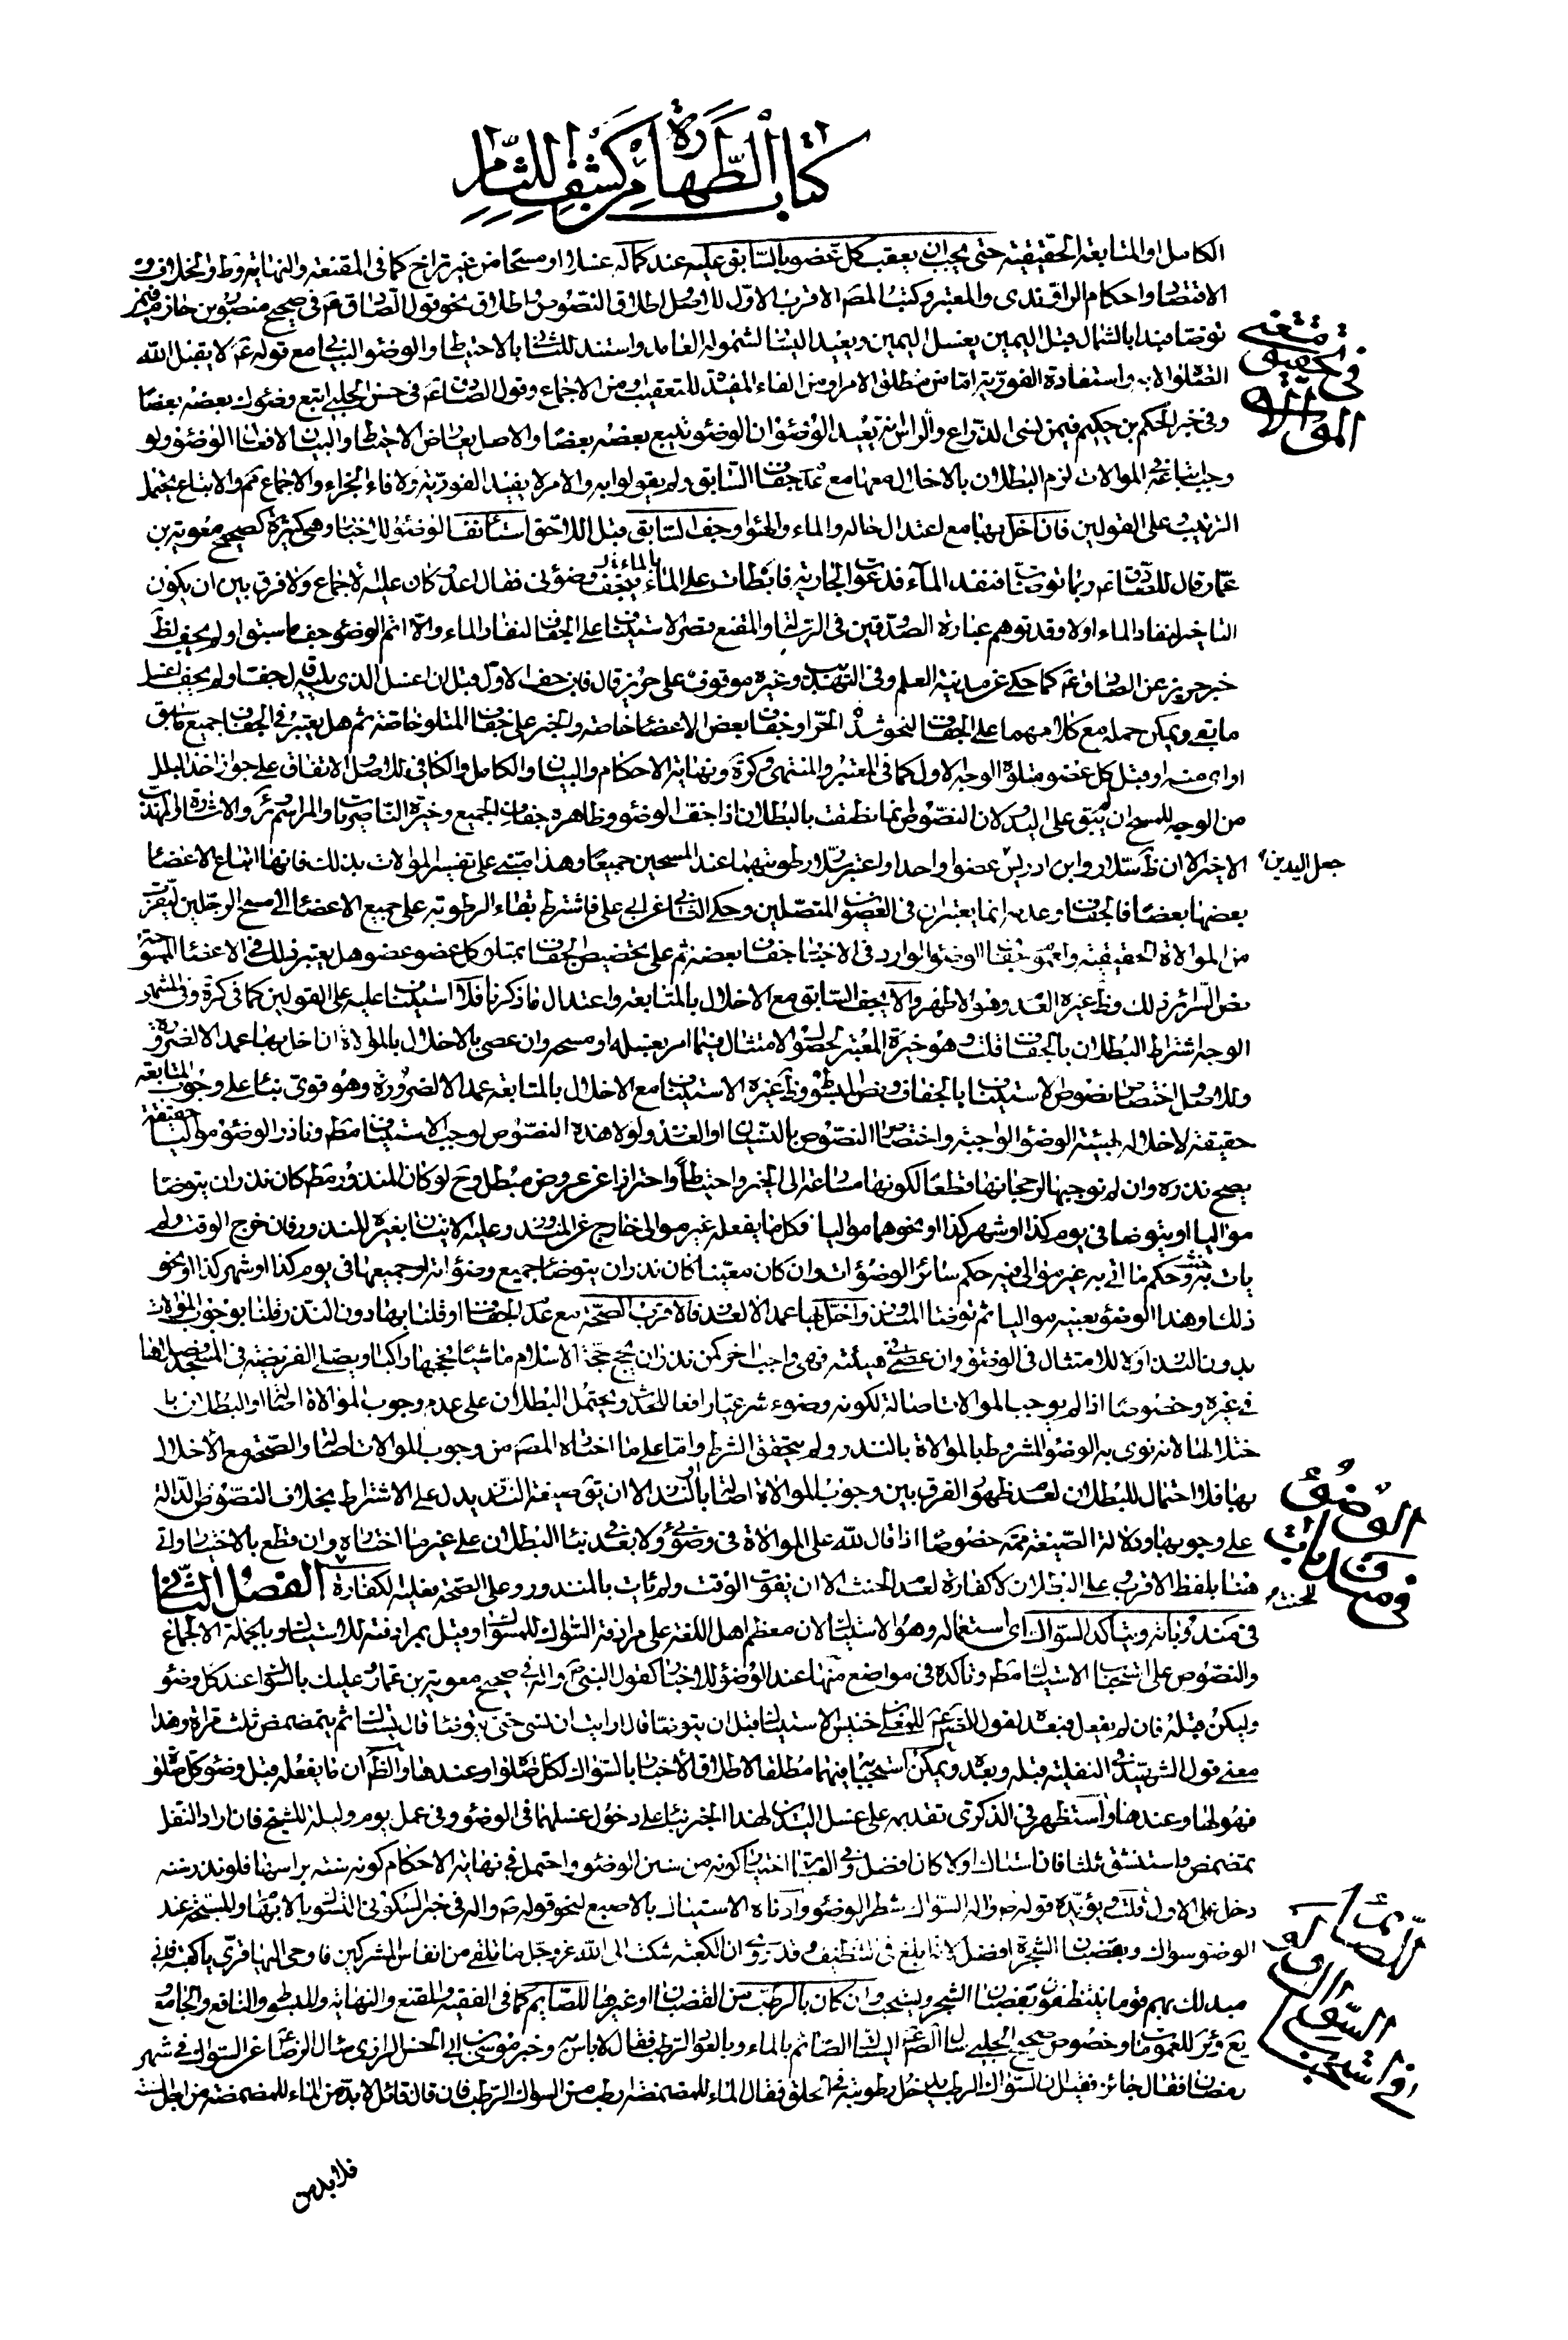 كتاب الطهارة من كشف اللثام
الكامل او المتابعة الحقيقية حتى يجب ان يعقب كل عضو بالسابق عليه عند كماله غسلا او مسحا من غير تراخ كما فى المقنعة والنهاية وط والخلاف و
الاقتصاد واحكام الراوندى والمعتبر وكتب المصـ الاقرب الاول للاصل واطلاق النصوص نحو قول الصادق ع فى صحيح منصور بن حازم فيمن
توضا فبدا بالشمال قبل اليمين يغسل اليمين ويعيد اليسار لشموله العامد واستند للثانى بالاحتياط والوضوء البيانى مع قوله ع لا يقبل الله
الصلوة الا به واستفادة الفورية اما من مطلق الامر او من الفاء المفيدة للتعقيب او من الاجماع وقول الصادق ع فى حسن الحلبى اتبع وضوئك بعضه بعضا
وفى خبر الحكم بن حكيم فيمن نسى الذراع والراس انه يعيد الوضوء ان الوضوء يتبع بعضه بعضا والاصل يعارض الاحتياط والبيان لافعال الوضوء ولو
وجب متابعة الموالات لزم البطلان بالاخلال بها مع عدم جفاف السابق ولم يقولوا به والامر لا يفيد الفورية ولا فاء الجزاء والاجماع ثم والاتباع يحتمل
الترتيب على القولين فان اخل بها مع اعتدال حاله والماء والهواء وجف السابق قبل اللاحق استانف الوضوء للاخبار وهى كثيرة كصحيح معوية بن
عمار قال للصادق ع ربما توضات فنفد الماء فدعوت الجارية فابطات على بالماء فيجف وضوئى فقال اعد كان عليه الاجماع ولا فرق بين ان يكون
التاخير لنفاد الماء او لا وقد توهم عبارة الصدوقين فى الرسالة والمقنع قصر الاستيناف على الجفاف لنفاد الماء والا اتم الوضوء جف ما سبق او لم يجف لظ
خبر حريز عن الصادق ع كما حكى عن مدينة العلم وفى التهذيب وغيره موقوف على حريز قال فان جف الاول قبل ان اغسل الذى يليه قال جف او لم يجف اغسل
ما بقى ويمكن حمله مع كلامهما على الجفاف لنحو شدة الحر او جفاف بعض الاعضاء خاصة والخبر على جفاف المتلو خاصة ثم هل يعتبر فى الجفاف جميع ما سبق
او اى منه او قبل كل عضو متلوه الوجه الاول كما فى المعتبر والمنتهى وكرة ونهاية الاحكام والبيان والكامل والكافى للاصل والاتفاق على جواز اخذ البلل
من الوجه للمسح ان لم يبق على اليد لان النصوص انما نطقت بالبطلان اذا جف الوضوء وظاهره جفاف الجميع وخيرة الناصريات والمراسم ئر والاشارة والمهذب
الاخير الا ان ظ سلار وابن ادريس جعل اليدين عضوا واحدا واعتبر سلار رطوبتهما عند المسحين جميعا وهذا مبنى على تفسير الموالات بذلك فانها اتباع الاعضاء
بعضها بعضا فالجفاف وعدمه انما يعتبران فى العضوين المتصلين وحكى الثانى عن ابى على فاشترط بقاء الرطوبة على جميع الاعضاء الى مسح الرجلين ليقرب
من الموالاة الحقيقية
نص السرائر ذلك وظ غيره العدم وهو الاظهر والا يجف السابق مع الاخلال بالمتابعة واعتدال ما ذكرنا فلا استيناف عليه على القولين كما فى كرة وفى المشهور
الوجه اشتراط البطلان بالجفاف قلت وهو خيرة المعتبر لحصول الامتثال فيما امر بغسله او مسحه وان عصى بالاخلال بالموالاة ان اخل بها عمدا لا لضرورة
وللاصل واختصاص نصوص الاستيناف بالجفاف ونص المبسوط وظ غيره الاستيناف مع الاخلال بالمتابعة عمدا لا لضرورة وهو قوى بناء على وجوب المتابعة
حقيقة لاخلاله بهيئة الوضوء الواجبة واختصاص النصوص بالنسيان او العذر ولولا هذه النصوص لوجب الاستيناف مط وناذر الوضوء مواليا حقيقة
يصح نذره وان لم نوجبها لرجحانها قطعا لكونها مسارعة الى الخير واحتياطا واحترازا عن عروض مبطل وح لو كان المنذور مط كان نذر ان يتوضا
مواليا او يتوضا فى يوم كذا او شهر كذا او نحوهما مواليا فكل ما يفعله غير موالى خارج عن المنذور وعليه الاتيان بغيره للمنذور فان خرج الوقت ولم
يات به حنث وحكم ما اتى به غير موالى فيه حكم سائر الوضوءات وان كان معينا كان نذر ان يتوضا جميع وضوءاته او جميعها فى يوم كذا او شهر كذا او نحو
ذلك او هذا الوضوء بعينه مواليا ثم توضا المنذور واخل بها عمدا لا لعذر فالاقرب الصحة مع عدم الجفاف او قلنا بها دون النذر قلنا بوجوب الموالات
بدون النذر او لا للامتثال فى الوضوء وان عصى فى هيئته فهى واجب اخر كمن نذر ان يحج حجة الاسلام ماشيا فحجها راكبا او يصلى الفريضة فى المسجد فصلاها
فى غيره وخصوصا اذا لم يوجب الموالات اصالة لكونه وضوء شرعيا رافعا للحدث ويحتمل البطلان على عدم وجوب الموالاة اصالة او البطلان با
خلالها لانه نوى به الوضوء المشروط بالموالاة بالنذر ولم يتحقق الشرط واما على ما اختاره المصـ من وجوب الموالات اصالة والصحة مع الاخلال
بها فلا احتمال للبطلان لعدم ظهور الفرق بين وجوب الموالاة اصالة او بالنذر الا ان يق صيغة النذر يدل على الاشتراط بخلاف النصوص الدالة
على وجوبها ودلالة الصيغة ممة خصوصا اذا قال لله على الموالاة فى وضوئى ولا بعد فى بناء البطلان على غير ما اختاره وان قطع بالاختيار واتى
هنا بلفظ الاقرب وعلى البطلان لا كفارة لعدم الحنث الا ان يفوت الوقت ولم يات بالمنذور وعلى الصحة فعليه الكفارة للحنث الفصل الثانى
فى مندوباته ويتاكد السواك اى استعماله وهو الاستياك لان معظم اهل اللغة على مرادفة السواك للمسواك وقيل بمرادفته للاستياك وبالجملة الاجماع
والنصوص على استحباب الاستياك مط وتاكده فى مواضع منها عند الوضوء للاخبار كقول النبى ص واله فى صحيح معوية بن عمار وعليك بالسواك عند كل وضوء
وليكن قبله فان لم يفعل فبعده لقول الصادق ع للمعلى بن خنيس الاستياك قبل ان يتوضا قال ارايت ان نسى حتى يتوضا قال يستاك ثم يتمضمض ثلث مرات وهذا
معنى قول الشهيد فى النفلية قبله وبعده ويمكن استحبابه فيهما مطلقا لاطلاق الاخبار بالسواك لكل صلوة او عندها والظ ان ما يفعله قبل وضوء كل صلوة
فهو لها وعندها واستظهر فى الذكرى تقديمه على غسل اليدين لهذا الخبر بناء على دخول غسلهما فى الوضوء وفى عمل يوم وليلة للشيخ فان اراد النفل
تمضمض واستنشق ثلثا فان استاك اولا كان افضل وفى اختيار كونه من سنن الوضوء واحتمل فى نهاية الاحكام كونه سنة براسها فلو نذر سننه
دخل على الاول قلت ويؤيده قوله ص واله السواك شطر الوضوء وادناه الاستياك بالاصبع لنحو قوله ص واله فى خبر السكونى التسوك بالابهام والمسبحة عند
الوضوء سواك وبقضبان الشجرة افضل لانه ابلغ فى التنظيف وقد روى ان الكعبة شكت الى الله عز وجل ما تلقى من انفاس المشركين فاوحى اليها قرى يا كعبة فانى
مبدلك بهم قوما يتنظفون بقضبان الشجر ويستحب وان كان بالرطب من القضبان او غيرها للصائم كما فى الفقيه والمقنع والنهاية والمبسوط والنافع والجامع
يع وئر للعمومات وخصوص صحيح الحلبى سال الصادق ع ايستاك الصائم بالماء وبالعود الرطب فقال لا باس به وخبر موسى بن ابى الحسن الرازى سال الرضا ع عن السواك فى شهر
رمضان فقال جائز فقيل ان السواك الرطب يدخل رطوبته فى الحلق فقال الماء للمضمضة ارطب من السواك الرطب فان قال قائل لابد من الماء للمضمضة من اجل السنة
فلابد من
فى تحقيق
الموالاة
فى مندوبات
الوضوء
فى استحباب
السواك
للصائم